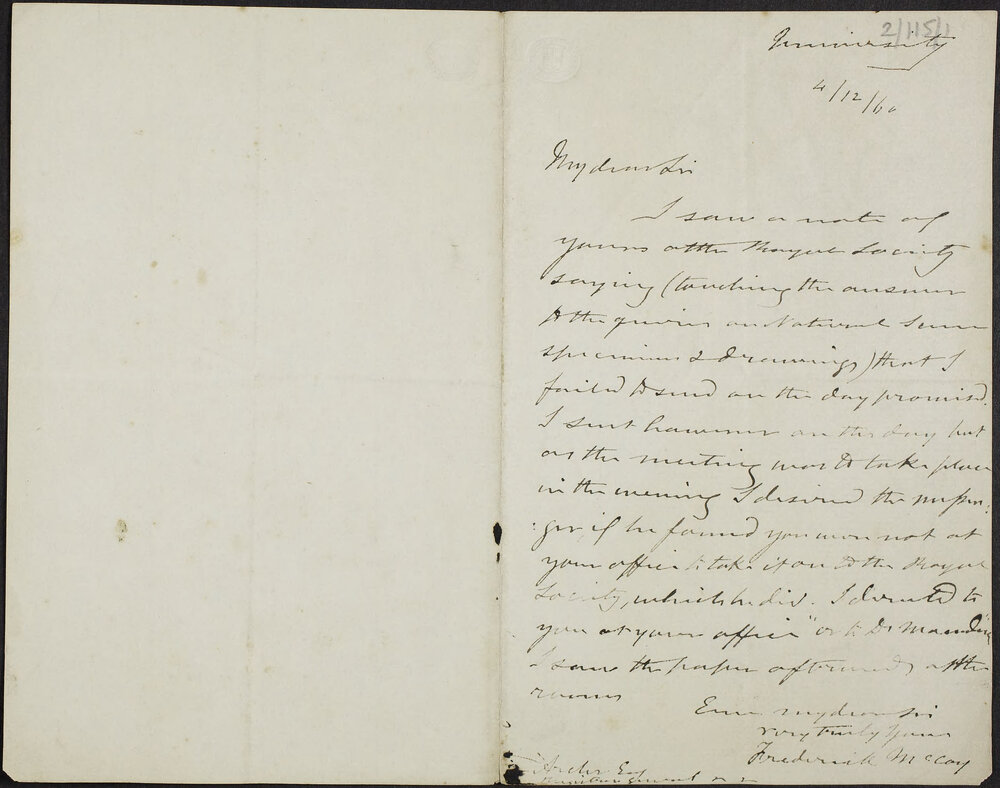 2/115/1
University
4/12/60
My dear Sir
I saw a note of
yours at the Royal Society
saying (touching the answer
to the queries on Natural
specimens & drawings) that I
failed to send on the day promised.
I sent however on the day but
as the meeting was to take place
in the evening I desired the messen:
:ger, if he found you were not at
your office to take it on to the Royal
Society, which he did. I directed to
you at your office "or to Dr
I saw the paper afterwards at the
rooms
Ever my dear Sir
very truly yours
Frederick McCoy
Archer Esq